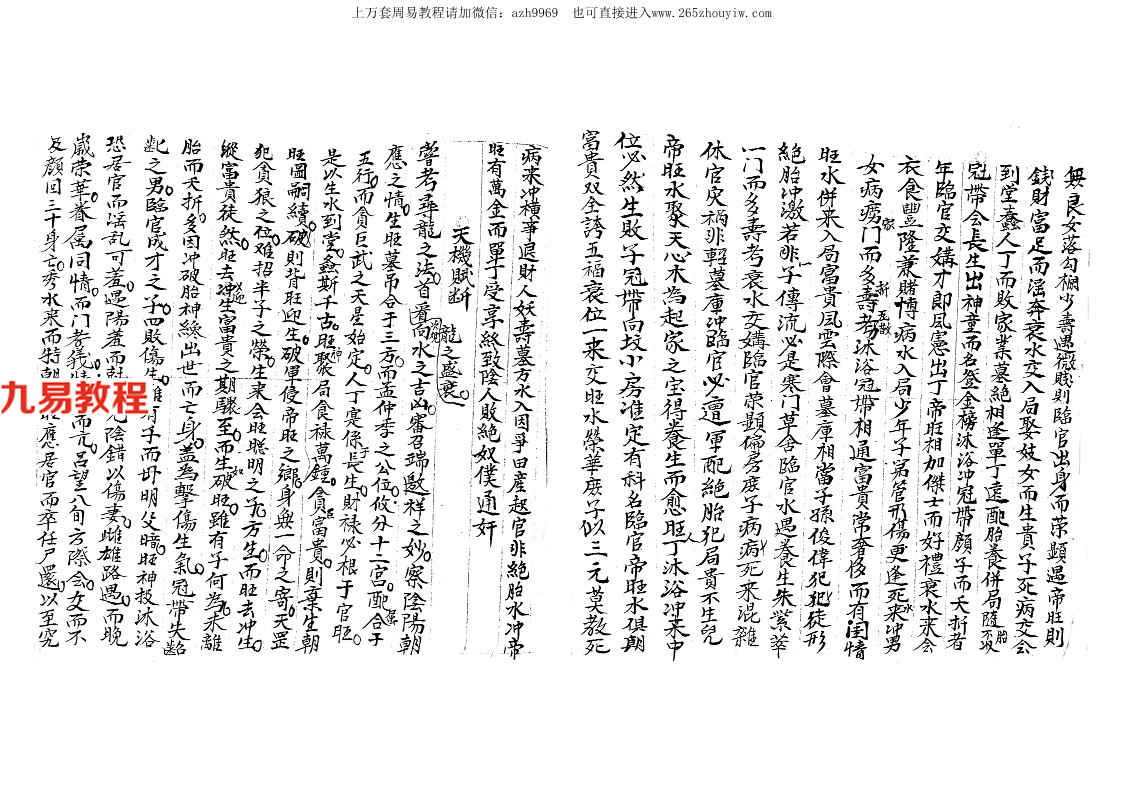 上万套周易教程请加微信：azh9969　也可直接进入www.265zhouyiw.com
無良女落勾欄少壽遇微賤則臨官出身而荣顕遇帝旺則
錢財富足而滛奔衰水交入局娶妓女而生貴子死病交会
到堂蠢人丁而敗家業墓絶相逢單丁遠配胎養併局隨胎不攻
冠帶会長生出神童而名登金榜沐浴冲冠帶顔子而夭折者
年臨官交媾才郎風憲出丁帝旺相加傑士而好禮衰水來会
衣食豐隆兼賭博病水入局少年子寡管刑傷更逢死水來冲男
女病癆門而多壽若沐浴冠帶相通富貴常奢侈而有閨情
旺水併來入局富貴風雲際會墓庫相當子孫俊偉犯犯徒形
絶胎冲激若非子傳流必是寒門草舍臨官水遇養生朱紫萃
一门而多壽考衰水交媾臨官荣顕偏房庶子病病死来混雜
休官灾禍非輕墓庫冲臨官必遭軍配絶胎犯局貴不生兒
帝旺水聚天心木為起家之宝得養生而愈旺丁沐浴冲来中
位必然生敗子冠帶向坟小房准定有科名臨官帝旺水俱朝
富貴双全誇五福衰位一来交旺水榮華庶子似三元莫教死
病来冲橫爭退財人妖壽墓方水入因爭田産起官非絶胎水冲帝
旺有萬金而單丁受享終致陰人敗絶奴僕通奸
天機賦断
嘗考尋龍之法首看向水之吉凶審召瑞邀祥之妙察陰陽朝
龍之盛衰
應之情生旺墓吊合于三方而孟仲季之公位攸分十二宫配合于
五行而貪巨武之天星始定人丁寔係于長生財禄必根于官旺
是以生水到堂螽斯千古旺神聚局食禄萬鍾貪富貴則棄生朝
旺圖嗣續破則背旺迎生破軍侵帝旺之鄉身無一命之寄天罡
犯貪狼之位难招半子之榮生来会旺聪明之子方生而旺去冲生
縱富貴徒然旺去冲生富貴之期驟至而生破旺雖有子何為未離
胎而夭折多因冲破胎神纔出世而亡身盖為擊傷生氣冠帶失
齔之男臨官成才之子四敗傷生雖有子而母明父暗旺神投沐浴
恐居官而滛乱可羞遇陽羞而
陰錯以傷妻雌雄路遇而晚
歲荣華眷属同情而门
而亢呂望八旬方際会女而不
及顔回三十身亡秀水来而特朝
旺應居官而卒任尸還以至究
九易教程